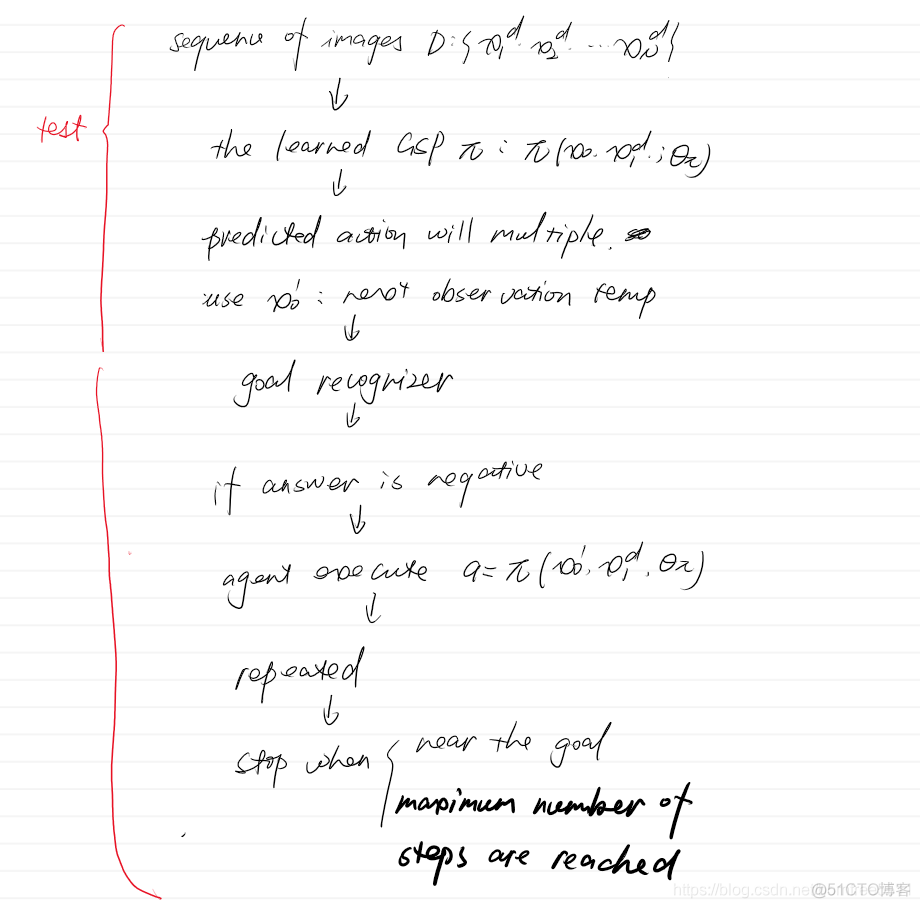 sequence of images D:{x₁ᵈ x₂ᵈ ... x_Nᵈ}
↓
test
the learned GSP π : π(x₀. x₁ᵈ ; θπ)
↓
predicted action will multiple.
use x₀' : next observation temp
↓
goal recognizer
↓
if answer is negative
↓
agent execute a=π(x₀', x₁ᵈ, θπ)
↓
repeated
↓
stop when { near the goal
maximum number of
steps are reached
https://blog.csdn.net
@51CTO博客